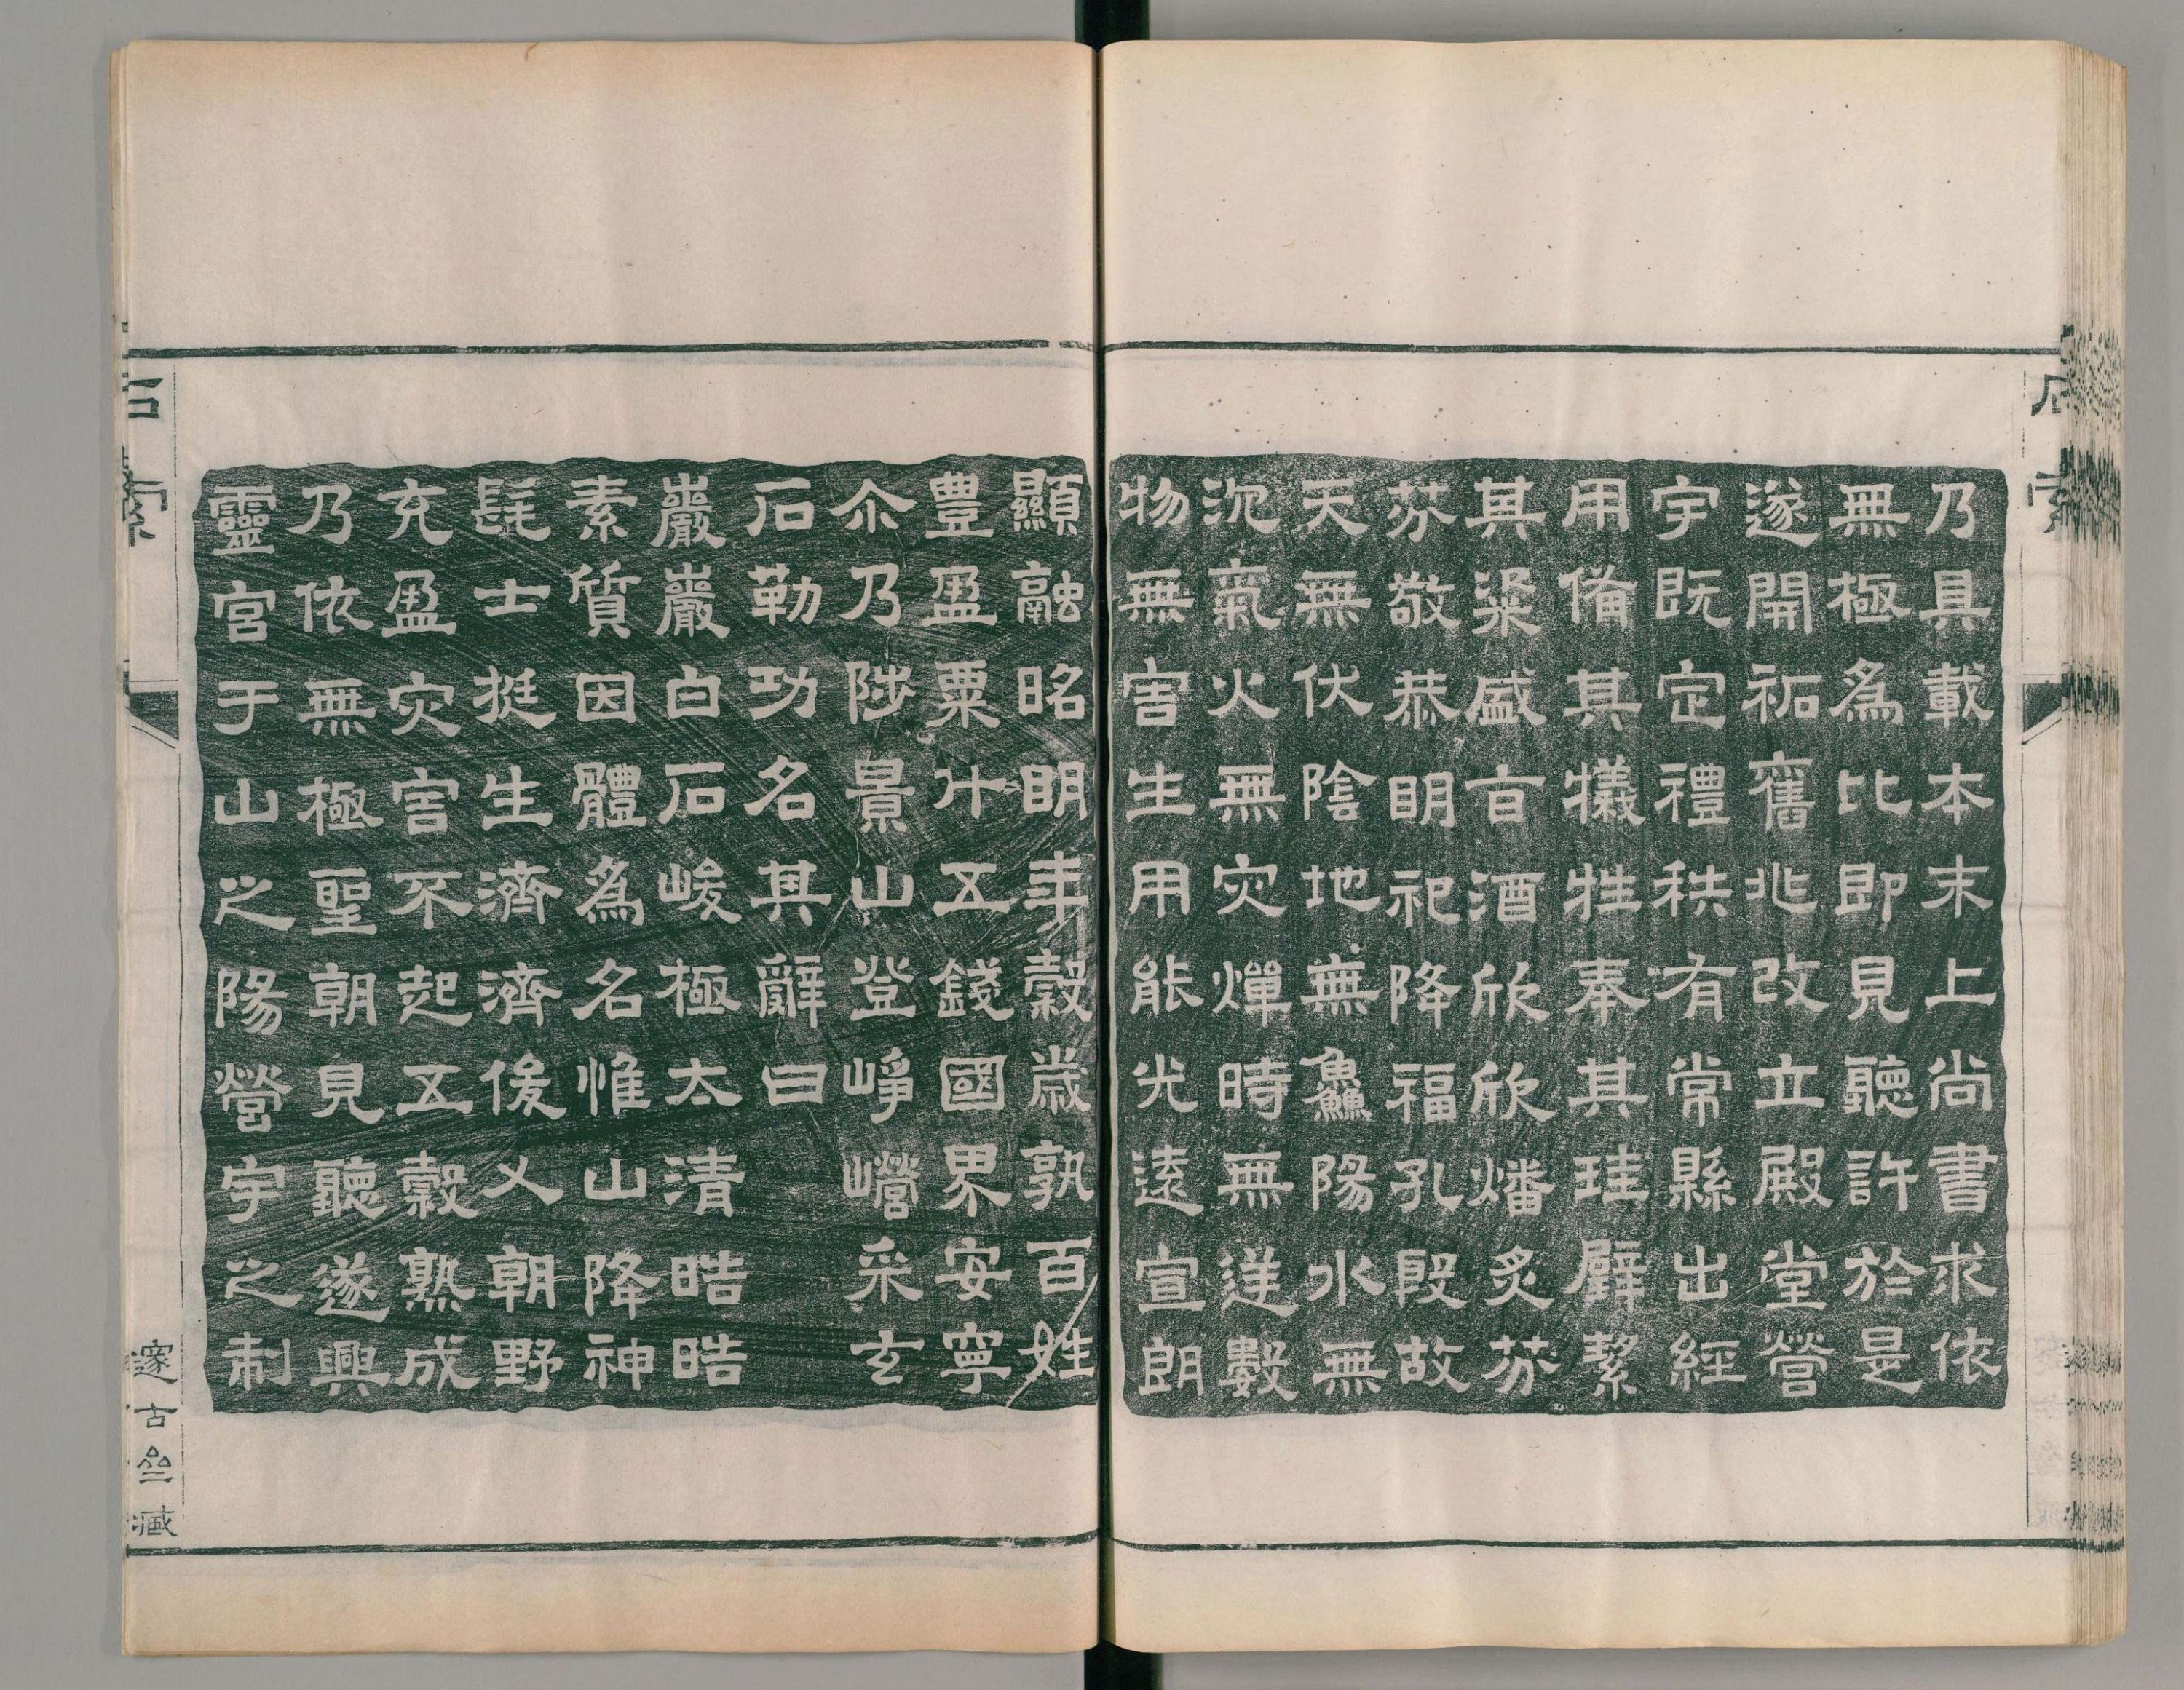 乃具載本末上尚書求依
無極為比即見聽許於是
遂開祏舊兆改立殿堂營
宇既定禮秩有常縣出經
用俻其犧牲奉其珪璧絜
其粢盛旨酒欣欣燔炙芬
芬敬恭明祀降福孔殷故
天無伏陰地無鱻陽水無
沉氣火無灾燀時無逆數
物無害生用能光遠宣朗
顯融昭明年穀歲孰百姓
豐盈粟升五錢國界安寧
尒乃陟景山登崢嶸采玄
石勒功名其辭曰
巖巖白石峻極太清晧晧
素質因體為名惟山降神
髦士挺生濟濟俊乂朝野
充盈灾害不起五穀熟成
乃依無極聖朝見聽遂興
靈宮于山之陽營宇之制
石索
邃古叄藏